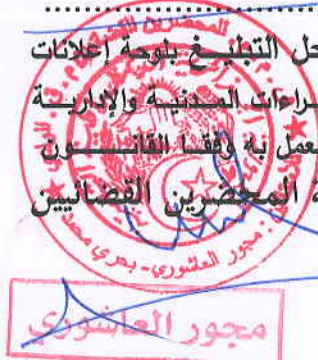 حل التبليغ بلوحة إعلانات
راءات المدنية والإدارية
عمل به وفقا القانون
ة المحضرين القضائيين
مجور العاشوري - بحري محمد
مجور العاشوري